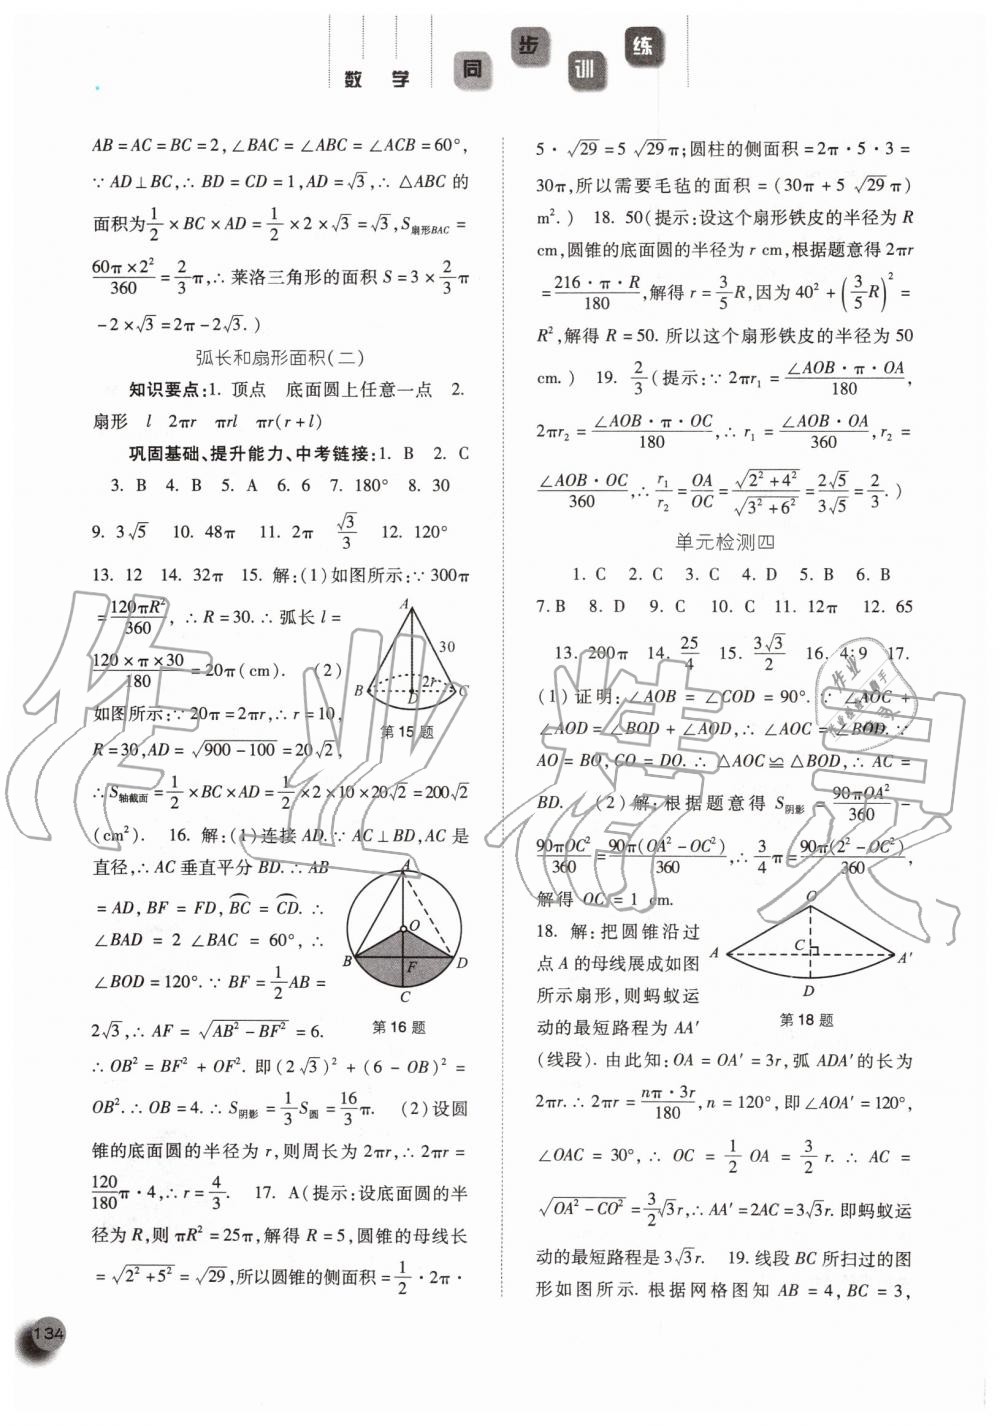 数 学 同 步 训 练
AB=AC=BC=2,∠BAC=∠ABC=∠ACB=60°,
∵AD⊥BC,∴BD=CD=1,AD=√3,∴△ABC的
面积为1/2×BC×AD=1/2×2×√3=√3,S扇形BAC=
60π×2²/360=2/3π,∴莱洛三角形的面积S=3×2/3π
-2×√3=2π-2√3.)
弧长和扇形面积(二)
知识要点:1. 顶点 底面圆上任意一点 2.
扇形 l 2πr πrl πr(r+l)
巩固基础、提升能力、中考链接:1. B 2. C
3. B 4. B 5. A 6. 6 7. 180° 8. 30
9. 3√5 10. 48π 11. 2π √3/3 12. 120°
13. 12 14. 32π 15. 解:(1)如图所示:∵300π
=120πR²/360, ∴R=30.∴弧长l=
120×π×30/180=20π(cm). (2)
如图所示:∵20π=2πr,∴r=10,
R=30,AD=√900-100=20√2,
A
30
2r
B
D
C
第15题
∴S轴截面=1/2×BC×AD=1/2×2×10×20√2=200√2
(cm²). 16. 解:(1)连接AD.∵AC⊥BD,AC是
直径,∴AC垂直平分BD.∴AB
=AD,BF=FD,BC=CD.∴
∠BAD=2∠BAC=60°,∴
∠BOD=120°.∵BF=1/2AB=
2√3,∴AF=√AB²-BF²=6.
A
O
B
F
D
C
第16题
∴OB²=BF²+OF².即(2√3)²+(6-OB)²=
OB².∴OB=4.∴S阴影=1/3S圆=16/3π. (2)设圆
锥的底面圆的半径为r,则周长为2πr,∴2πr=
120/180π·4,∴r=4/3. 17. A(提示:设底面圆的半
径为R,则πR²=25π,解得R=5,圆锥的母线长
=√2²+5²=√29,所以圆锥的侧面积=1/2·2π·
134
5·√29=5√29π;圆柱的侧面积=2π·5·3=
30π,所以需要毛毡的面积=(30π+5√29π)
m².) 18. 50(提示:设这个扇形铁皮的半径为R
cm,圆锥的底面圆的半径为r cm,根据题意得2πr
=216·π·R/180,解得r=3/5R,因为40²+(3/5R)²=
R²,解得R=50.所以这个扇形铁皮的半径为50
cm.) 19. 2/3(提示:∵2πr₁=∠AOB·π·OA/180,
2πr₂=∠AOB·π·OC/180,∴r₁=∠AOB·OA/360,r₂=
∠AOB·OC/360,∴r₁/r₂=OA/OC=√2²+4²/√3²+6²=2√5/3√5=2/3.)
单元检测四
1. C 2. C 3. C 4. D 5. B 6. B
7. B 8. D 9. C 10. C 11. 12π 12. 65
13. 200π 14. 25/4 15. 3√3/2 16. 4:9 17.
(1)证明:∠AOB=∠COD=90°.∵∠AOC+
∠AOD=∠BOD+∠AOD,∴∠AOC=∠BOD.∵
AO=BO,CO=DO.∴△AOC≌△BOD,∴AC=
BD. (2)解:根据题意得S阴影=90πOA²/360-
90πOC²/360=90π(OA²-OC²)/360,∴3/4π=90π(2²-OC²)/360,
解得OC=1 cm.
18. 解:把圆锥沿过
点A的母线展成如图
所示扇形,则蚂蚁运
动的最短路程为AA′
O
A
C
A′
D
第18题
(线段).由此知:OA=OA′=3r,弧ADA′的长为
2πr.∴2πr=nπ·3r/180,n=120°,即∠AOA′=120°,
∠OAC=30°,∴OC=1/2OA=3/2r.∴AC=
√OA²-CO²=3/2√3r,∴AA′=2AC=3√3r.即蚂蚁运
动的最短路程是3√3r. 19. 线段BC所扫过的图
形如图所示.根据网格图知AB=4,BC=3,
作业精灵